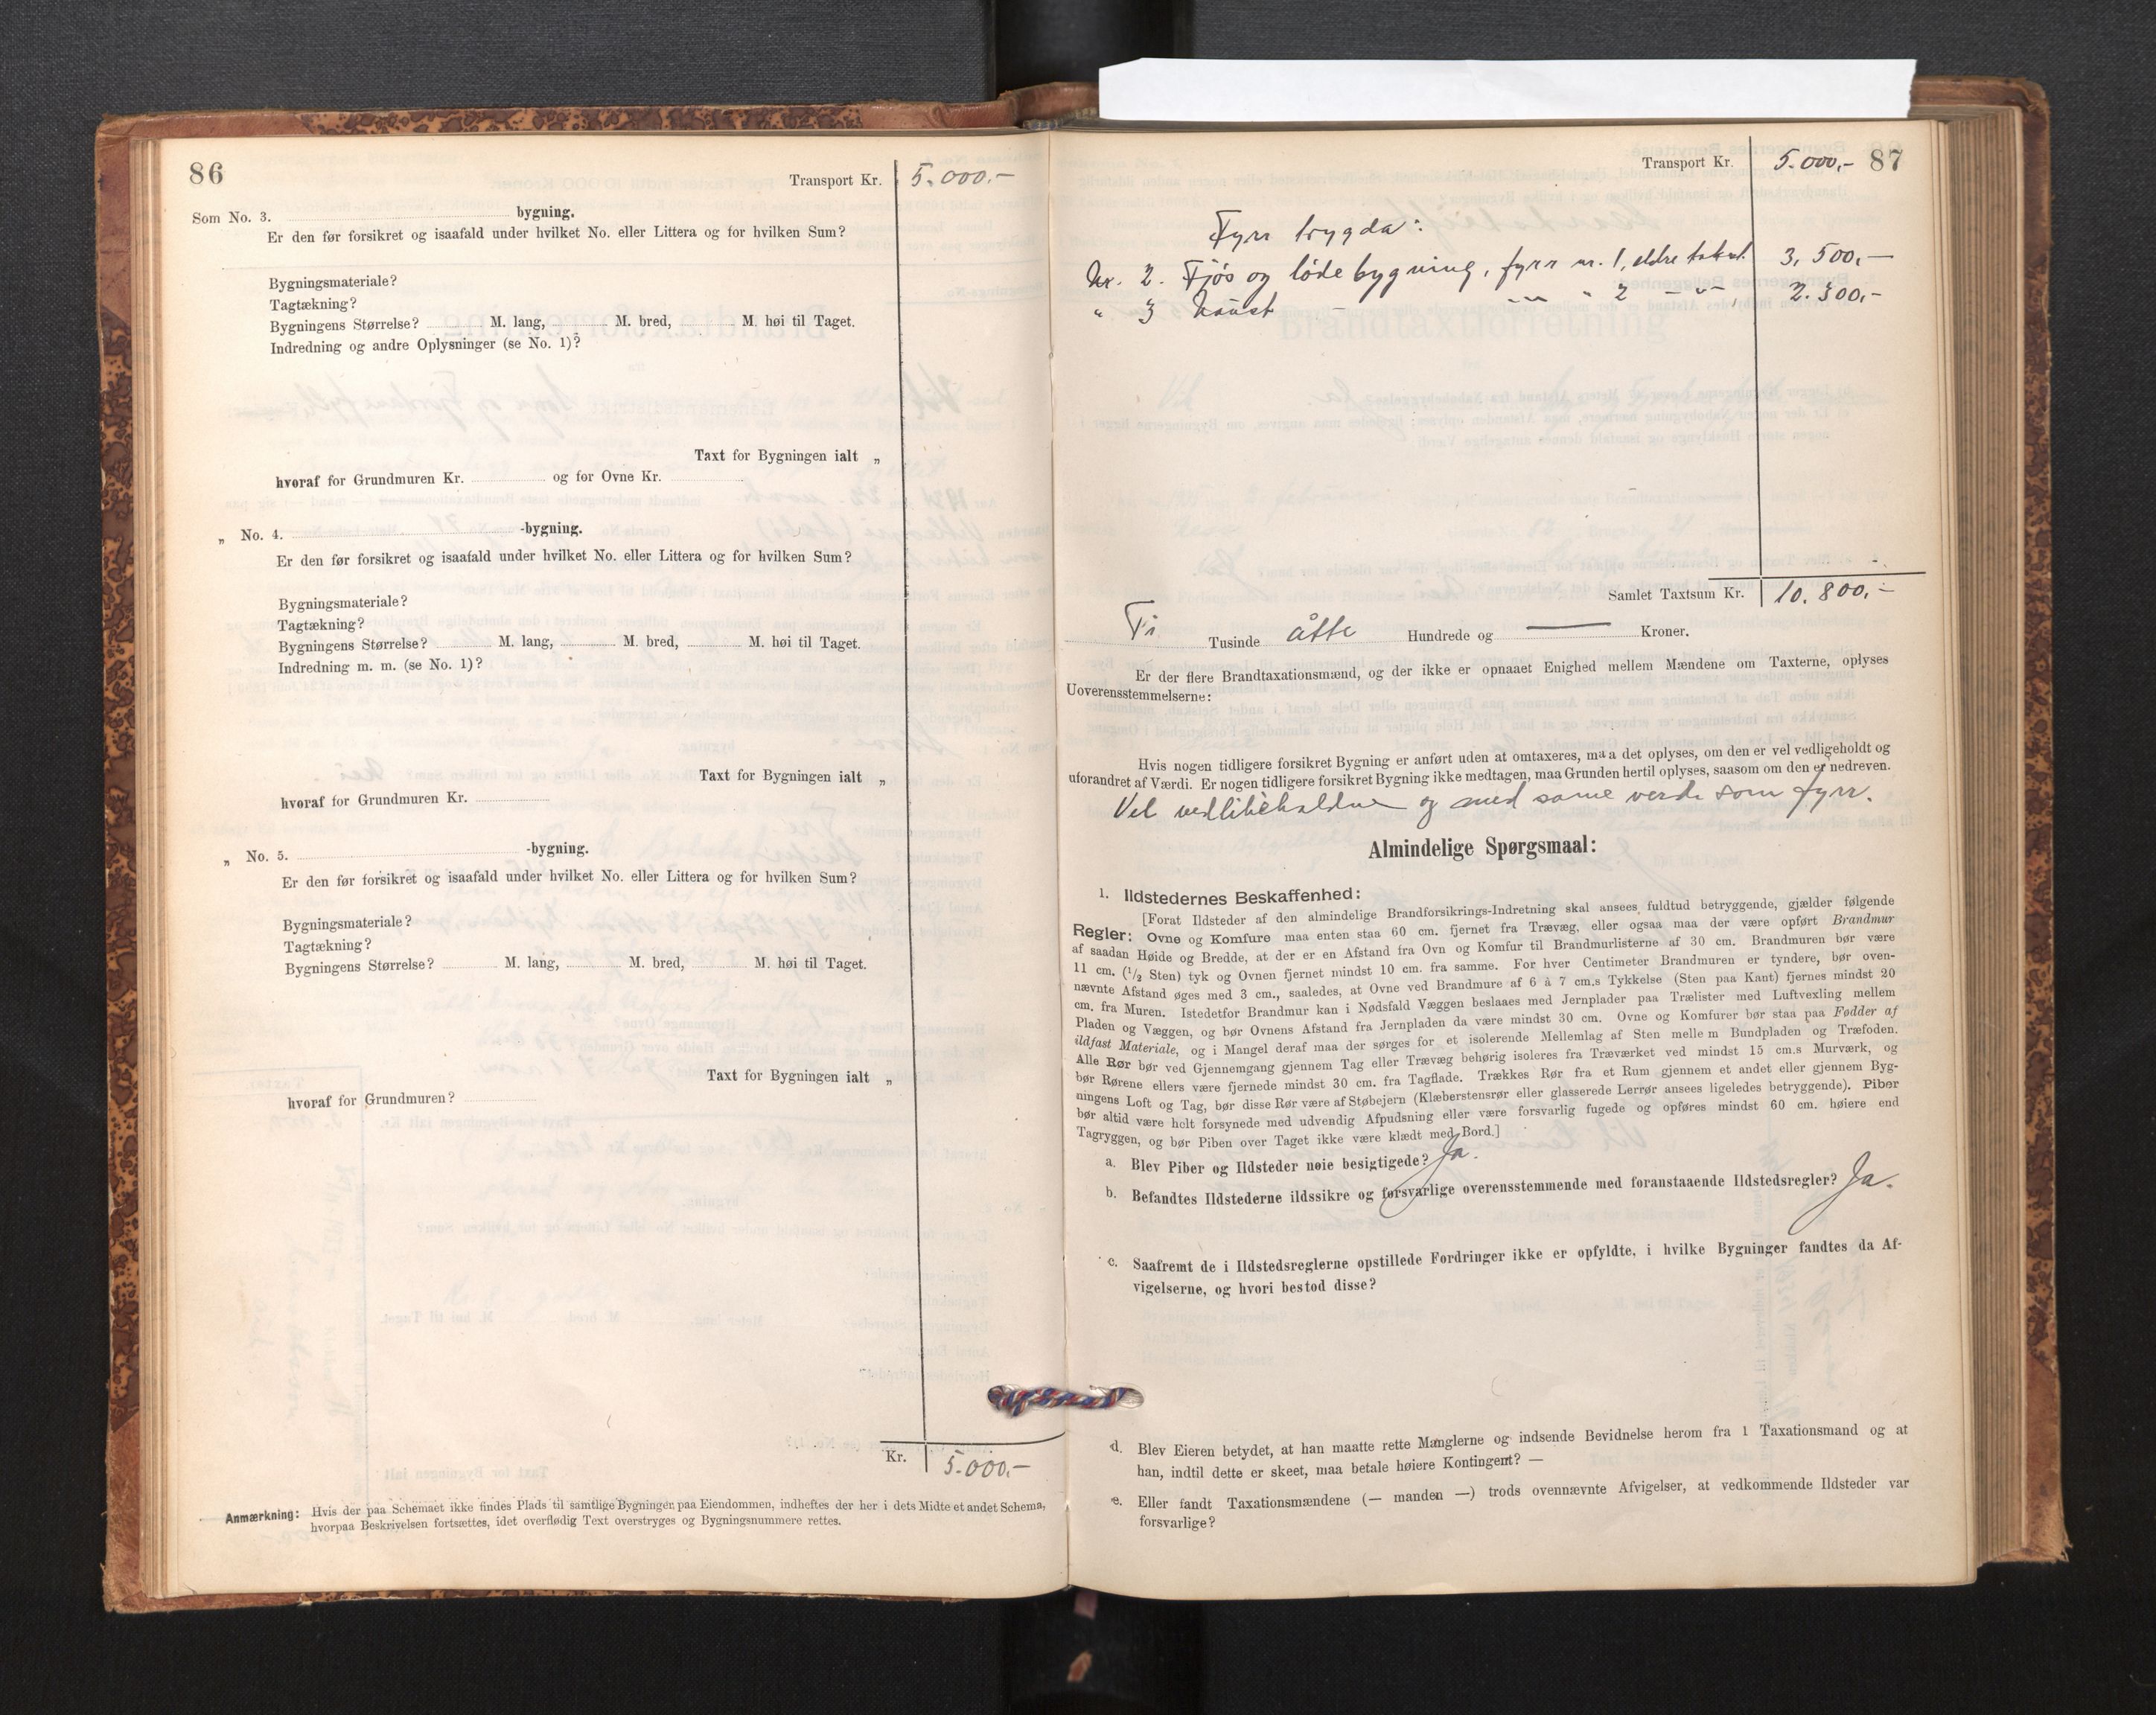 86
Transport Kr. 5.000.-
Som No. 3. bygning.
Er den før forsikret og isaafald under hvilket No. eller Littera og for hvilken Sum?
Bygningsmateriale?
Tagtækning?
Bygningens Størrelse? M. lang, M. bred, M. høi til Taget.
Indredning og andre Oplysninger (se No. 1)?
Taxt for Bygningen ialt „
hvoraf for Grundmuren Kr. og for Ovne Kr.
„ No. 4. -bygning.
Er den før forsikret og isaafald under hvilket No. eller Littera og for hvilken Sum?
Bygningsmateriale?
Tagtækning?
Bygningens Størrelse? M. lang, M. bred, M. høi til Taget.
Indredning m. m. (se No. 1)?
Taxt for Bygningen ialt „
hvoraf for Grundmuren Kr.
„ No. 5. -bygning.
Er den før forsikret og isaafald under hvilket No. eller Littera og for hvilken Sum?
Bygningsmateriale?
Tagtækning?
Bygningens Størrelse? M. lang, M. bred, M. høi til Taget.
Taxt for Bygningen ialt „
hvoraf for Grundmuren?
Kr. 5.000.-
Anmærkning: Hvis der paa Schemaet ikke findes Plads til samtlige Bygninger paa Eiendommen, indheftes der her i dets Midte et andet Schema,
hvorpaa Beskrivelsen fortsættes, idet overflødig Text overstryges og Bygningsnummere rettes.
Transport Kr. 5.000.- 87
Fyrr trygda:
Nr. 2. Fjøs og lødebygning, fyrr nr. 1, eldre takst 3,500.-
" 3 Naust - " - " 2 - " - 2.300.-
Samlet Taxtsum Kr. 10.800.-
Ti Tusinde åtte Hundrede og — Kroner.
Er der flere Brandtaxationsmænd, og der ikke er opnaaet Enighed mellem Mændene om Taxterne, oplyses
Uoverensstemmelserne:
Hvis nogen tidligere forsikret Bygning er anført uden at omtaxeres, maa det oplyses, om den er vel vedligeholdt og
uforandret af Værdi. Er nogen tidligere forsikret Bygning ikke medtagen, maa Grunden hertil oplyses, saasom om den er nedreven.
Vel vedlikehaldne og med same verde som fyrr.
Almindelige Spørgsmaal:
1. Ildstedernes Beskaffenhed:
[Forat Ildsteder af den almindelige Brandforsikrings-Indretning skal ansees fuldtud betryggende, gjælder følgende
Regler: Ovne og Komfure maa enten staa 60 cm. fjernet fra Trævæg, eller ogsaa maa der være opført Brandmur
af saadan Høide og Bredde, at der er en Afstand fra Ovn og Komfur til Brandmurlisterne af 30 cm. Brandmuren bør være
11 cm. (1/2 Sten) tyk og Ovnen fjernet mindst 10 cm. fra samme. For hver Centimeter Brandmuren er tyndere, bør oven-
nævnte Afstand øges med 3 cm., saaledes, at Ovne ved Brandmure af 6 à 7 cm.s Tykkelse (Sten paa Kant) fjernes mindst 20
cm. fra Muren. Istedetfor Brandmur kan i Nødsfald Væggen beslaaes med Jernplader paa Trælister med Luftvexling mellem
Pladen og Væggen, og bør Ovnens Afstand fra Jernpladen da være mindst 30 cm. Ovne og Komfurer bør staa paa Fødder af
ildfast Materiale, og i Mangel deraf maa der sørges for et isolerende Mellemlag af Sten mellem Bundpladen og Træfoden.
Alle Rør bør ved Gjennemgang gjennem Tag eller Trævæg behørig isoleres fra Træværket ved mindst 15 cm.s Murværk, og
bør Rørene ellers være fjernede mindst 30 cm. fra Tagflade. Trækkes Rør fra et Rum gjennem et andet eller gjennem Byg-
ningens Loft og Tag, bør disse Rør være af Støbejern (Klæberstensrør eller glasserede Lerrør ansees ligeledes betryggende). Piber
bør altid være helt forsynede med udvendig Afpudsning eller være forsvarlig fugede og opføres mindst 60 cm. høiere end
Tagryggen, og bør Piben over Taget ikke være klædt med Bord.]
a. Blev Piber og Ildsteder nøie besigtigede? Ja.
b. Befandtes Ildstederne ildssikre og forsvarlige overensstemmende med foranstaaende Ildstedsregler? Ja.
c. Saafremt de i Ildstedsreglerne opstillede Fordringer ikke er opfyldte, i hvilke Bygninger fandtes da Af-
vigelserne, og hvori bestod disse?
d. Blev Eieren betydet, at han maatte rette Manglerne og indsende Bevidnelse herom fra 1 Taxationsmand og at
han, indtil dette er skeet, maa betale høiere Kontingent? —
e. Eller fandt Taxationsmændene (— manden —) trods ovennævnte Afvigelser, at vedkommende Ildsteder var
forsvarlige?